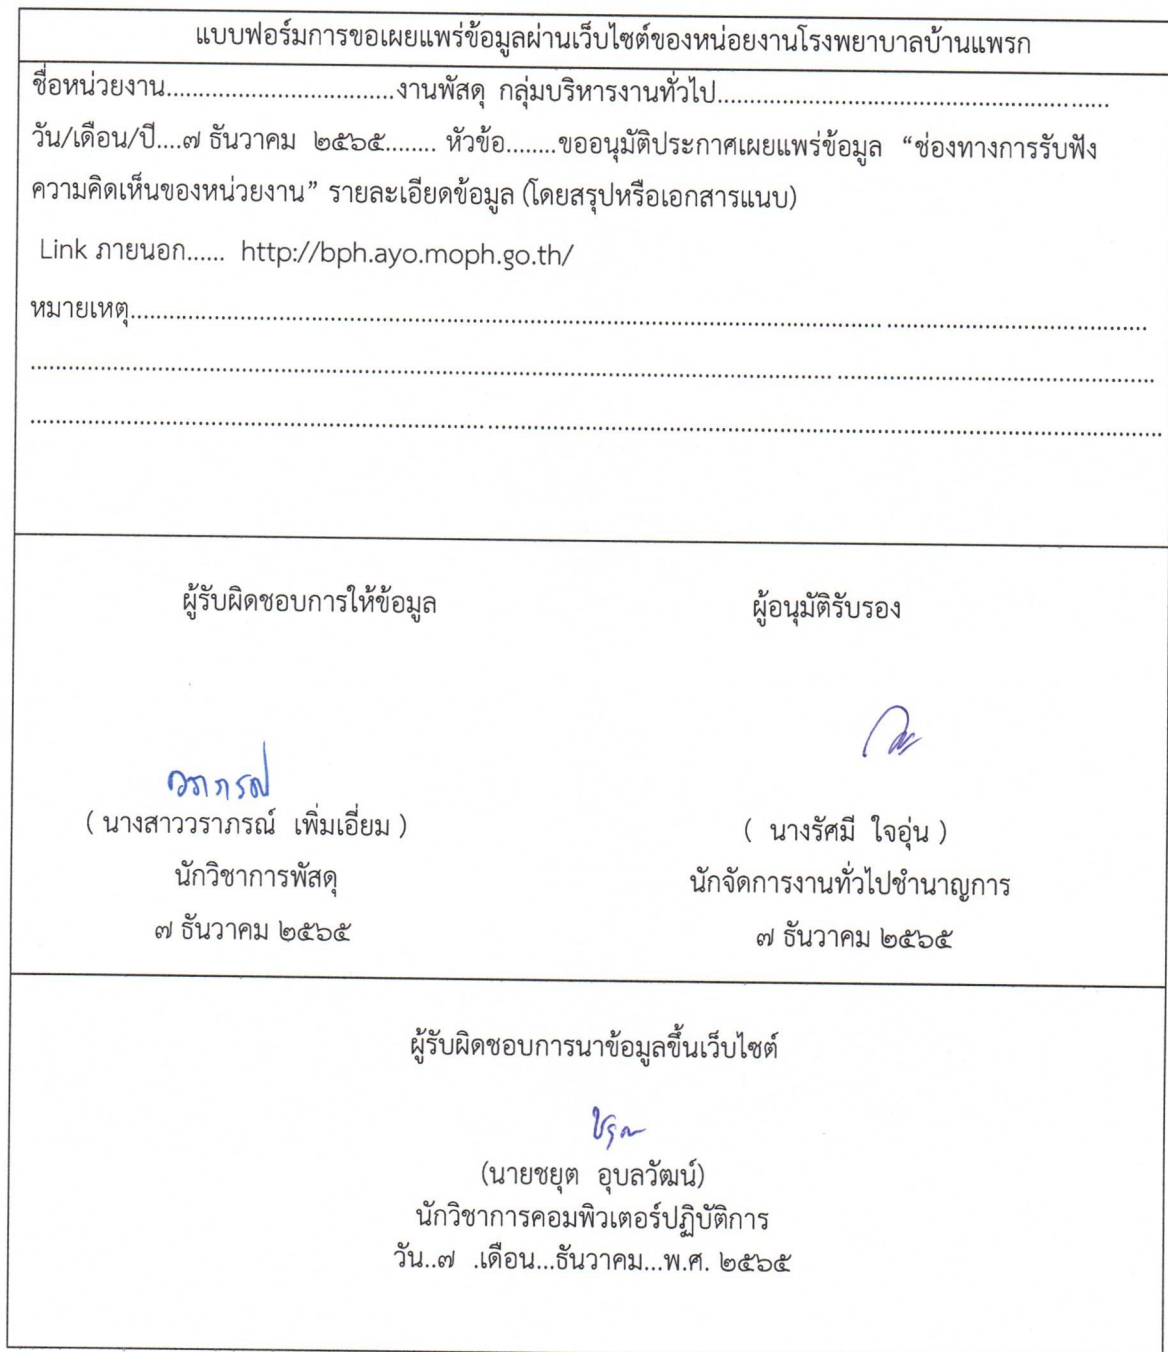 แบบฟอร์มการขอเผยแพร่ข้อมูลผ่านเว็บไซต์ของหน่อยงานโรงพยาบาลบ้านแพรก
ชื่อหน่วยงาน....................................งานพัสดุ กลุ่มบริหารงานทั่วไป..............................................................
วัน/เดือน/ปี....๗ ธันวาคม ๒๕๖๕........ หัวข้อ........ขออนุมัติประกาศเผยแพร่ข้อมูล “ช่องทางการรับฟัง
ความคิดเห็นของหน่วยงาน” รายละเอียดข้อมูล (โดยสรุปหรือเอกสารแนบ)
Link ภายนอก...... http://bph.ayo.moph.go.th/
หมายเหตุ..............................................................................................................................
ผู้รับผิดชอบการให้ข้อมูล ผู้อนุมัติรับรอง
วราภรณ์
( นางสาววราภรณ์ เพิ่มเอี่ยม ) ( นางรัศมี ใจอุ่น )
นักวิชาการพัสดุ นักจัดการงานทั่วไปชำนาญการ
๗ ธันวาคม ๒๕๖๕ ๗ ธันวาคม ๒๕๖๕
ผู้รับผิดชอบการนาข้อมูลขึ้นเว็บไซต์
(นายชยุต อุบลวัฒน์)
นักวิชาการคอมพิวเตอร์ปฏิบัติการ
วัน..๗ .เดือน...ธันวาคม...พ.ศ. ๒๕๖๕